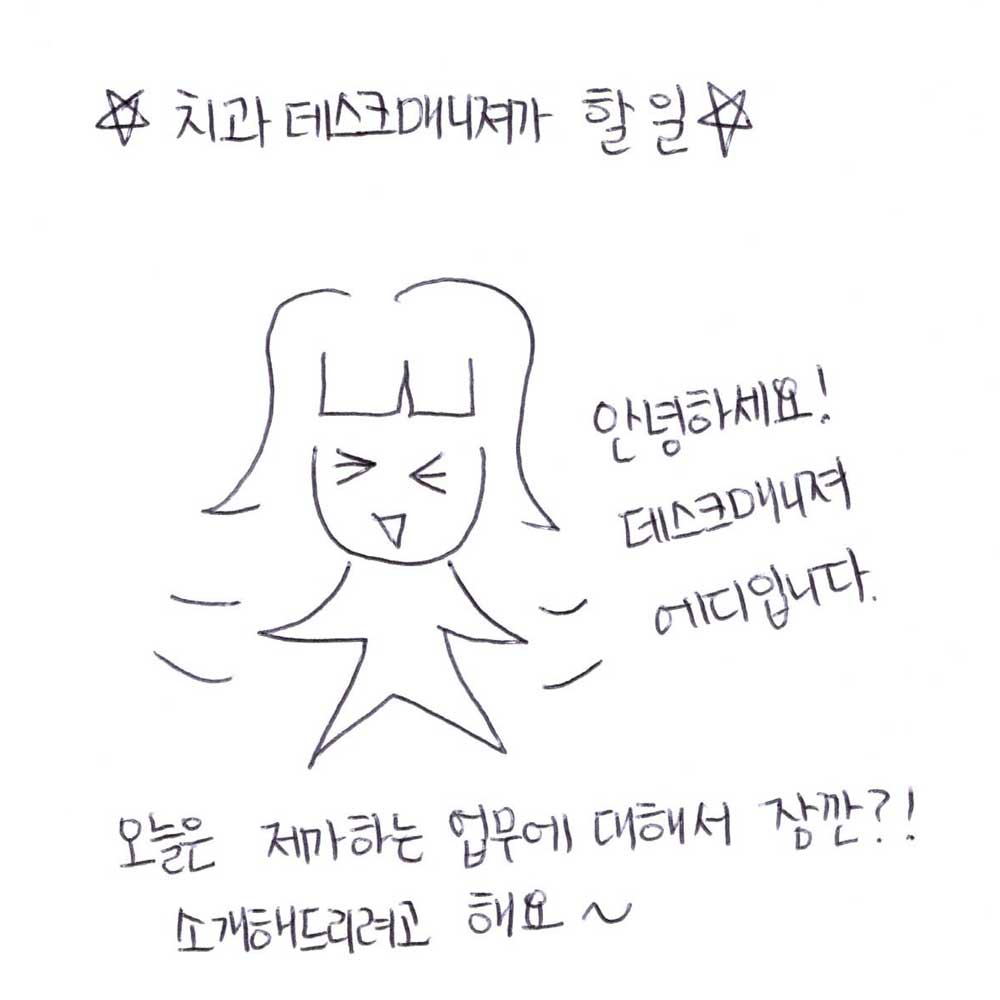 ☆ 치과 데스크매니져가 할 일 ☆
안녕하세요!
데스크매니져
에디입니다.
오늘은 제가하는 업무에 대해서 잠깐?!
소개해드리려고 해요~